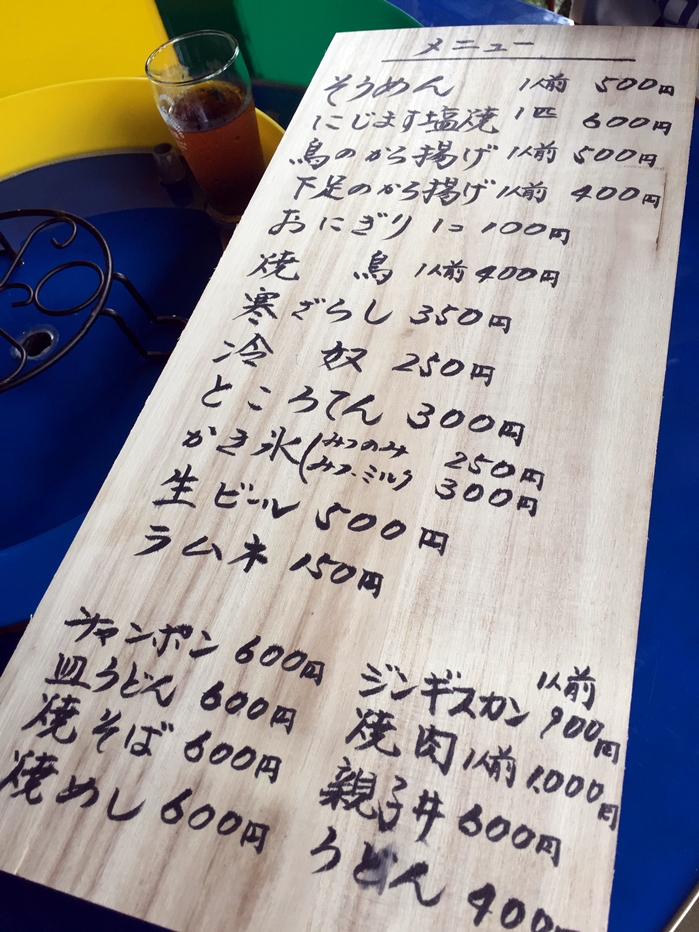 メニュー
そうめん 1人前 500円
にじます塩焼 1匹 600円
鳥のから揚げ 1人前 500円
下足のから揚げ 1人前 400円
おにぎり 1コ 100円
焼 鳥 1人前 400円
寒ざらし 350円
冷 奴 250円
ところてん 300円
かき氷(みつのみ 250円
みつ、ミルク 300円
生ビール 500円
ラムネ 150円
チャンポン 600円
皿うどん 600円
焼そば 600円
焼めし 600円
ジンギスカン 1人前 900円
焼肉 1人前 1.000円
親子丼 600円
うどん 400円